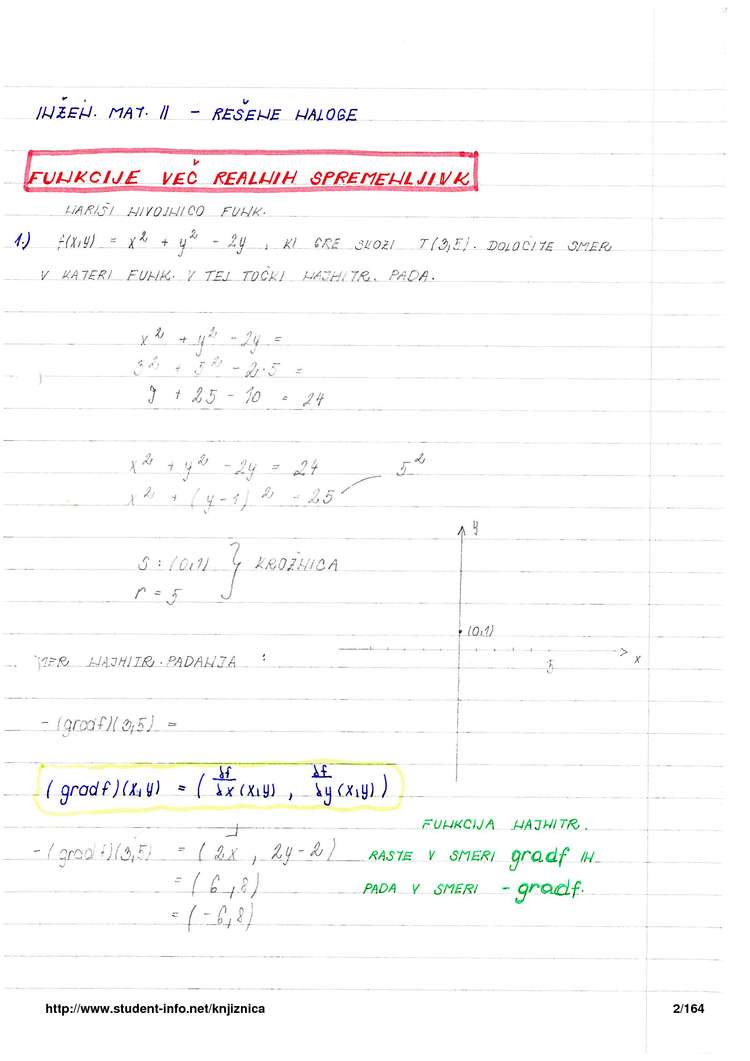 INŽEN. MAT. II - REŠENE NALOGE
FUNKCIJE VEČ REALNIH SPREMENLJIVK
NARIŠI NIVOJNICO FUNK.
1.) f(x,y) = x² + y² - 2y , KI GRE SKOZI T(3,5). DOLOČITE SMER
V KATERI FUNK. V TEJ TOČKI NAJHITR. PADA.
x² + y² - 2y =
3² + 5² - 2·5 =
9 + 25 - 10 = 24
x² + y² - 2y = 24
5²
x² + (y-1)² = 25
y
S: (0,1) } KROŽNICA
r = 5
(0,1)
5
x
SMER NAJHITR. PADANJA :
-(gradf)(3,5) =
(gradf)(x,y) = (δf/δx (x,y) , δf/δy (x,y))
FUNKCIJA NAJHITR.
-(gradf)(3,5) = (2x , 2y-2)
RASTE V SMERI gradf IN
= (6,8)
PADA V SMERI - gradf.
= (-6,8)
http://www.student-info.net/knjiznica
2/164